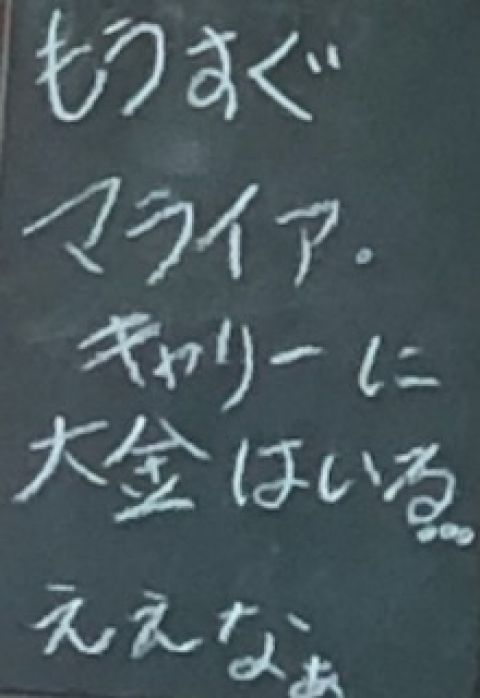 もうすぐ
マライア・
キャリーに
大金はいる...
ええなぁ